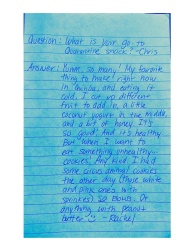 Question: What is your go to
Quarantine snack? -Chris
Answer: Yumm, so many! My favorite
thing to make right now
is quinoa, and eating it
cold. I cut up different
fruit to add in, a little
coconut yogurt in the middle
and a bit of honey. It's
SO good! And it's healthy.
But when I want to
eat something unhealthy...
cookies! And kind I had
some circus animal cookies
the other day (those white
and pink ones with
sprinkles) SO BOMB. Or
anything with peanut
butter - Rachel